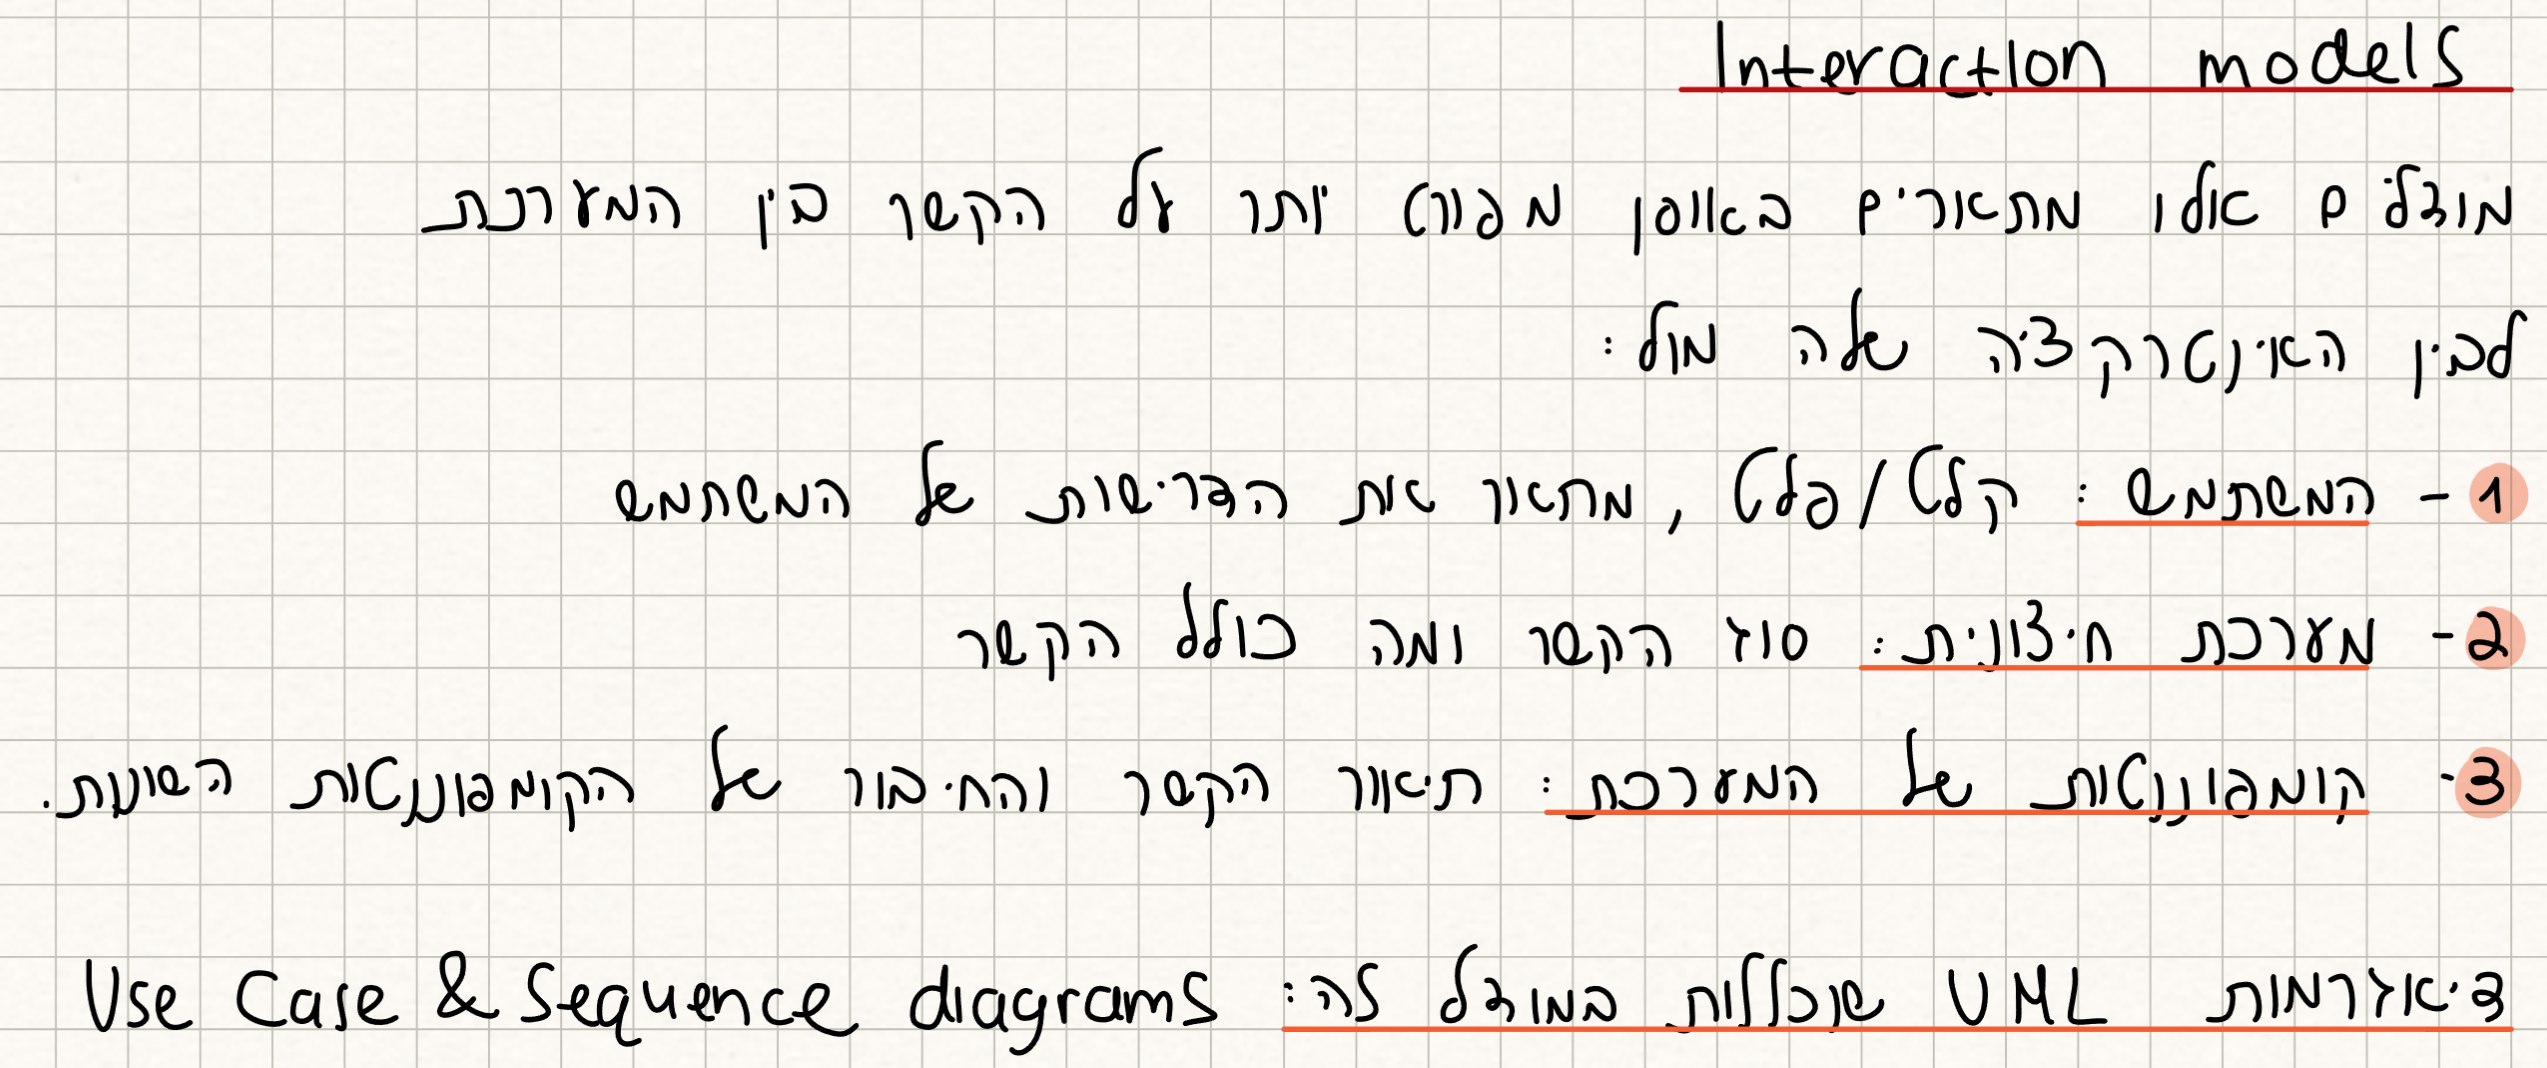 Interaction models
מודלים אלו מתארים באופן מפורט יותר על הקשר בין המערכת
לבין האינטרקציה שלה מול:
1- המשתמש: קלט/פלט, מתאר את הדרישות של המשתמש
2- מערכת חיצונית: סוג הקשר ומה כולל הקשר
3- קומפוננטות של המערכת: תיאור הקשר והחיבור של הקומפוננטות השונות.
דיאגרמות UML שכלולות במודל זה: Use Case & Sequence diagrams